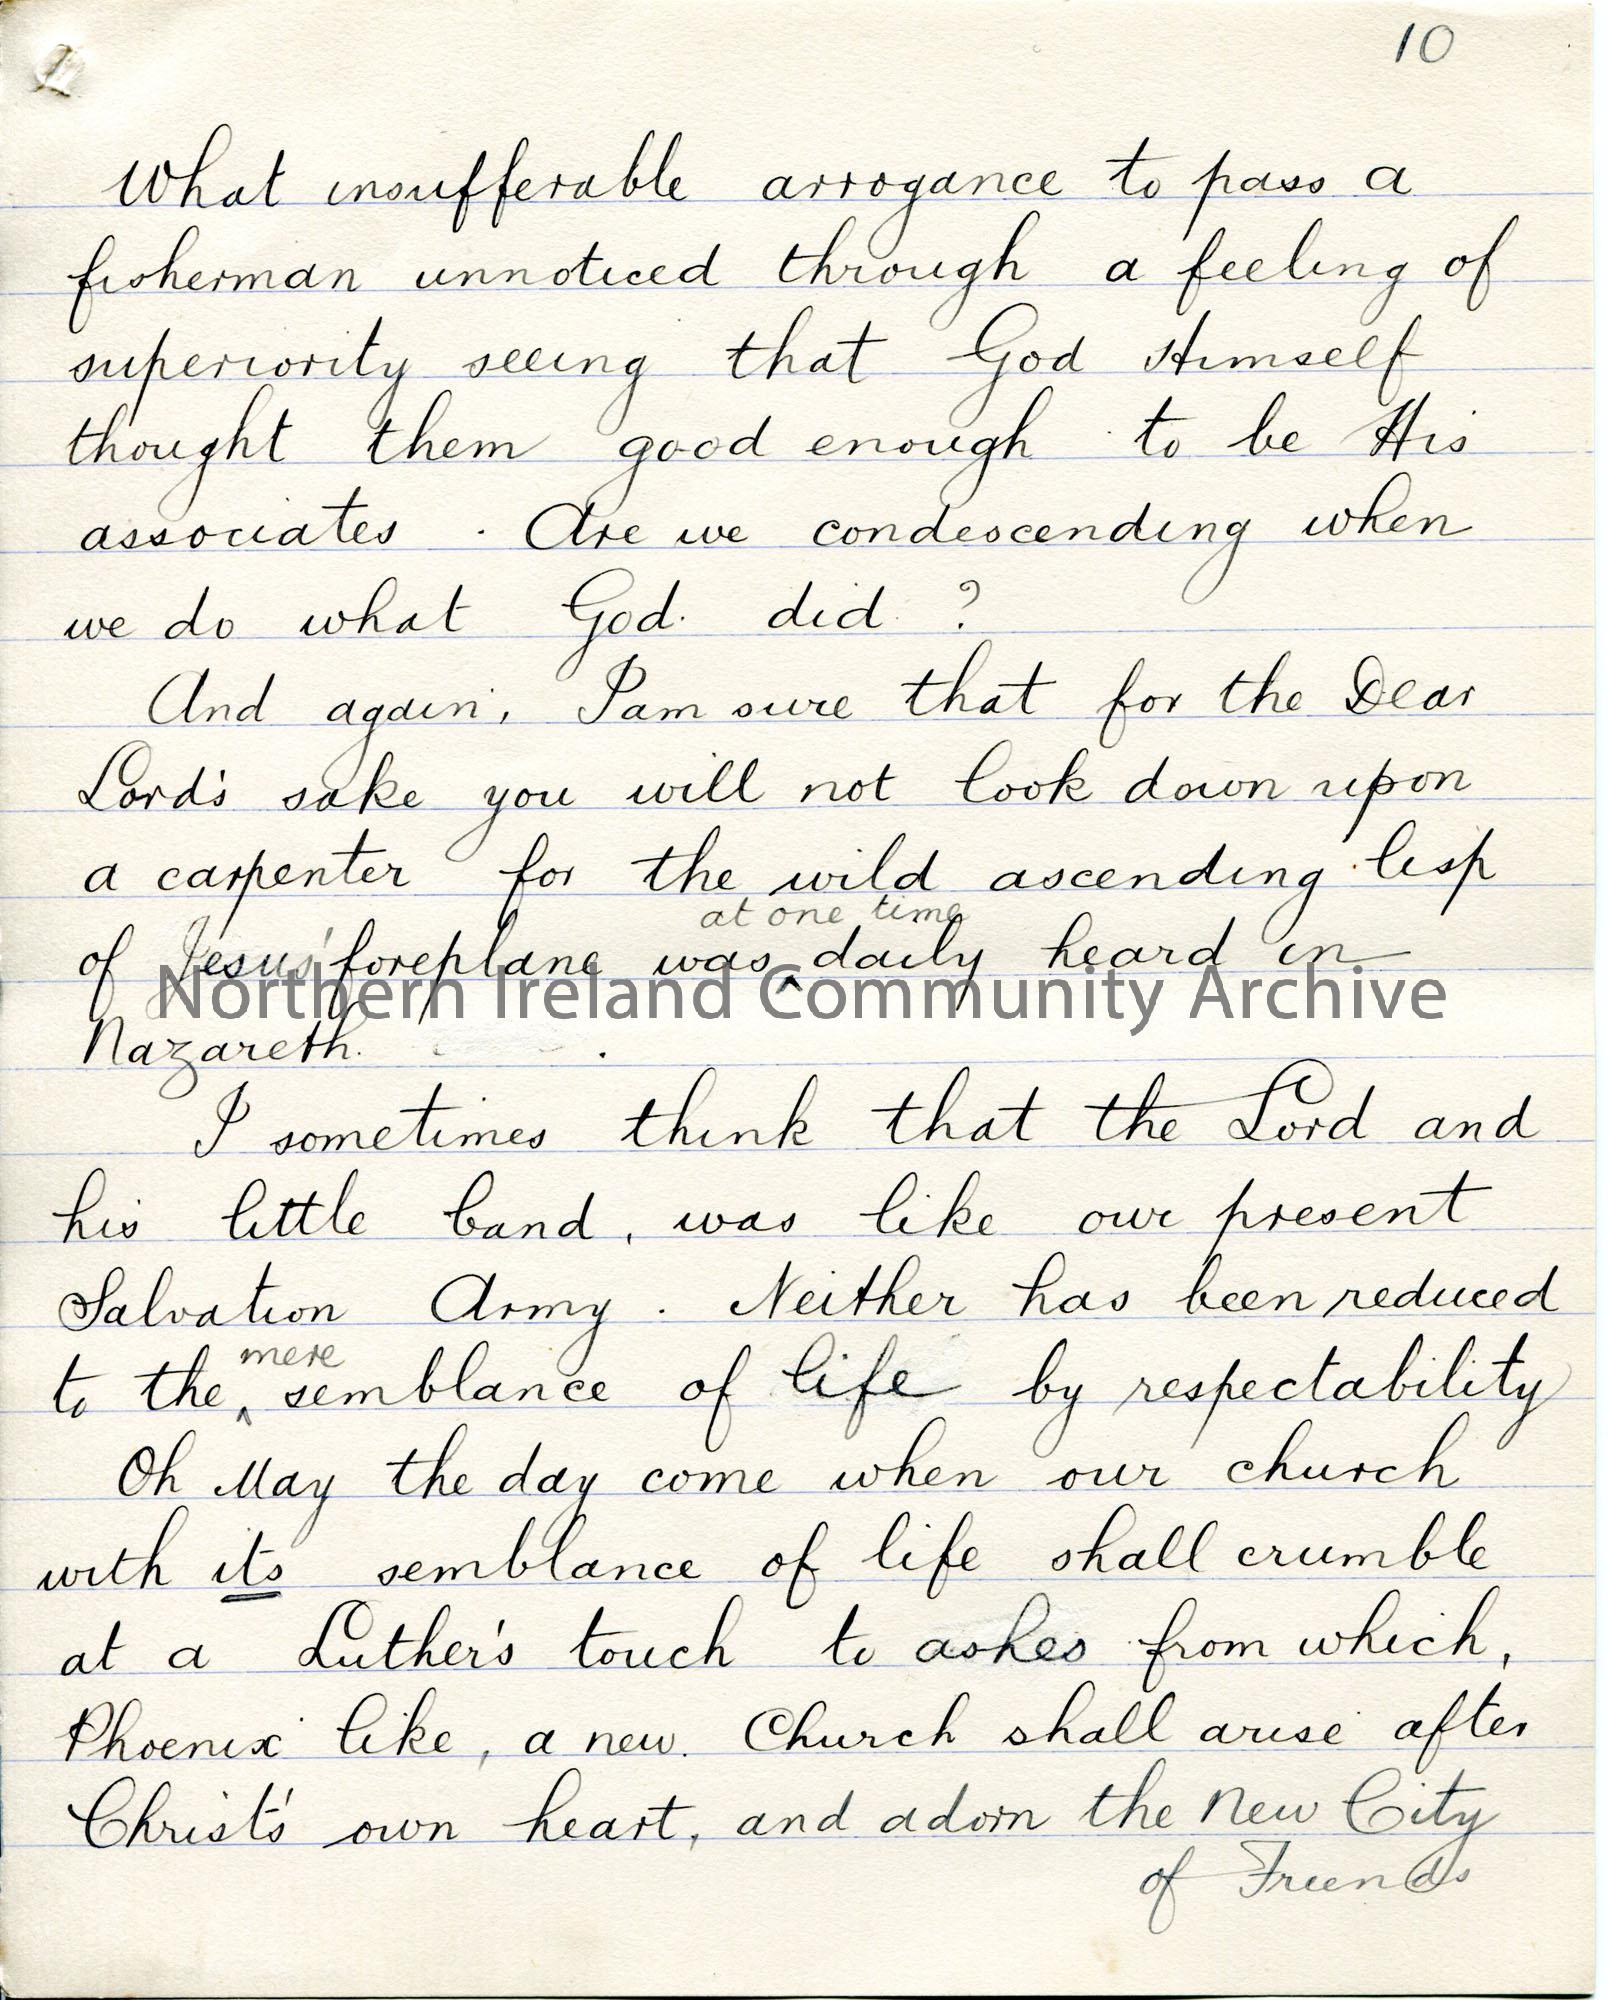 10
What insufferable arrogance to pass a
fisherman unnoticed through a feeling of
superiority seeing that God Himself
thought them good enough to be His
associates. Are we condescending when
we do what God did?
And again, I am sure that for the Dear
Lord's sake you will not look down upon
a carpenter for the wild ascending lisp
at one time
of Jesus' foreplane was ^ daily heard in
Northern Ireland Community Archive
Nazareth.
I sometimes think that the Lord and
his little band, was like our present
Salvation Army. Neither has been reduced
mere
to the ^ semblance of life by respectability
Oh May the day come when our church
with its semblance of life shall crumble
at a Luther's touch to ashes from which,
Phoenix like, a new Church shall arise after
Christ's own heart, and adorn the New City
of Friends